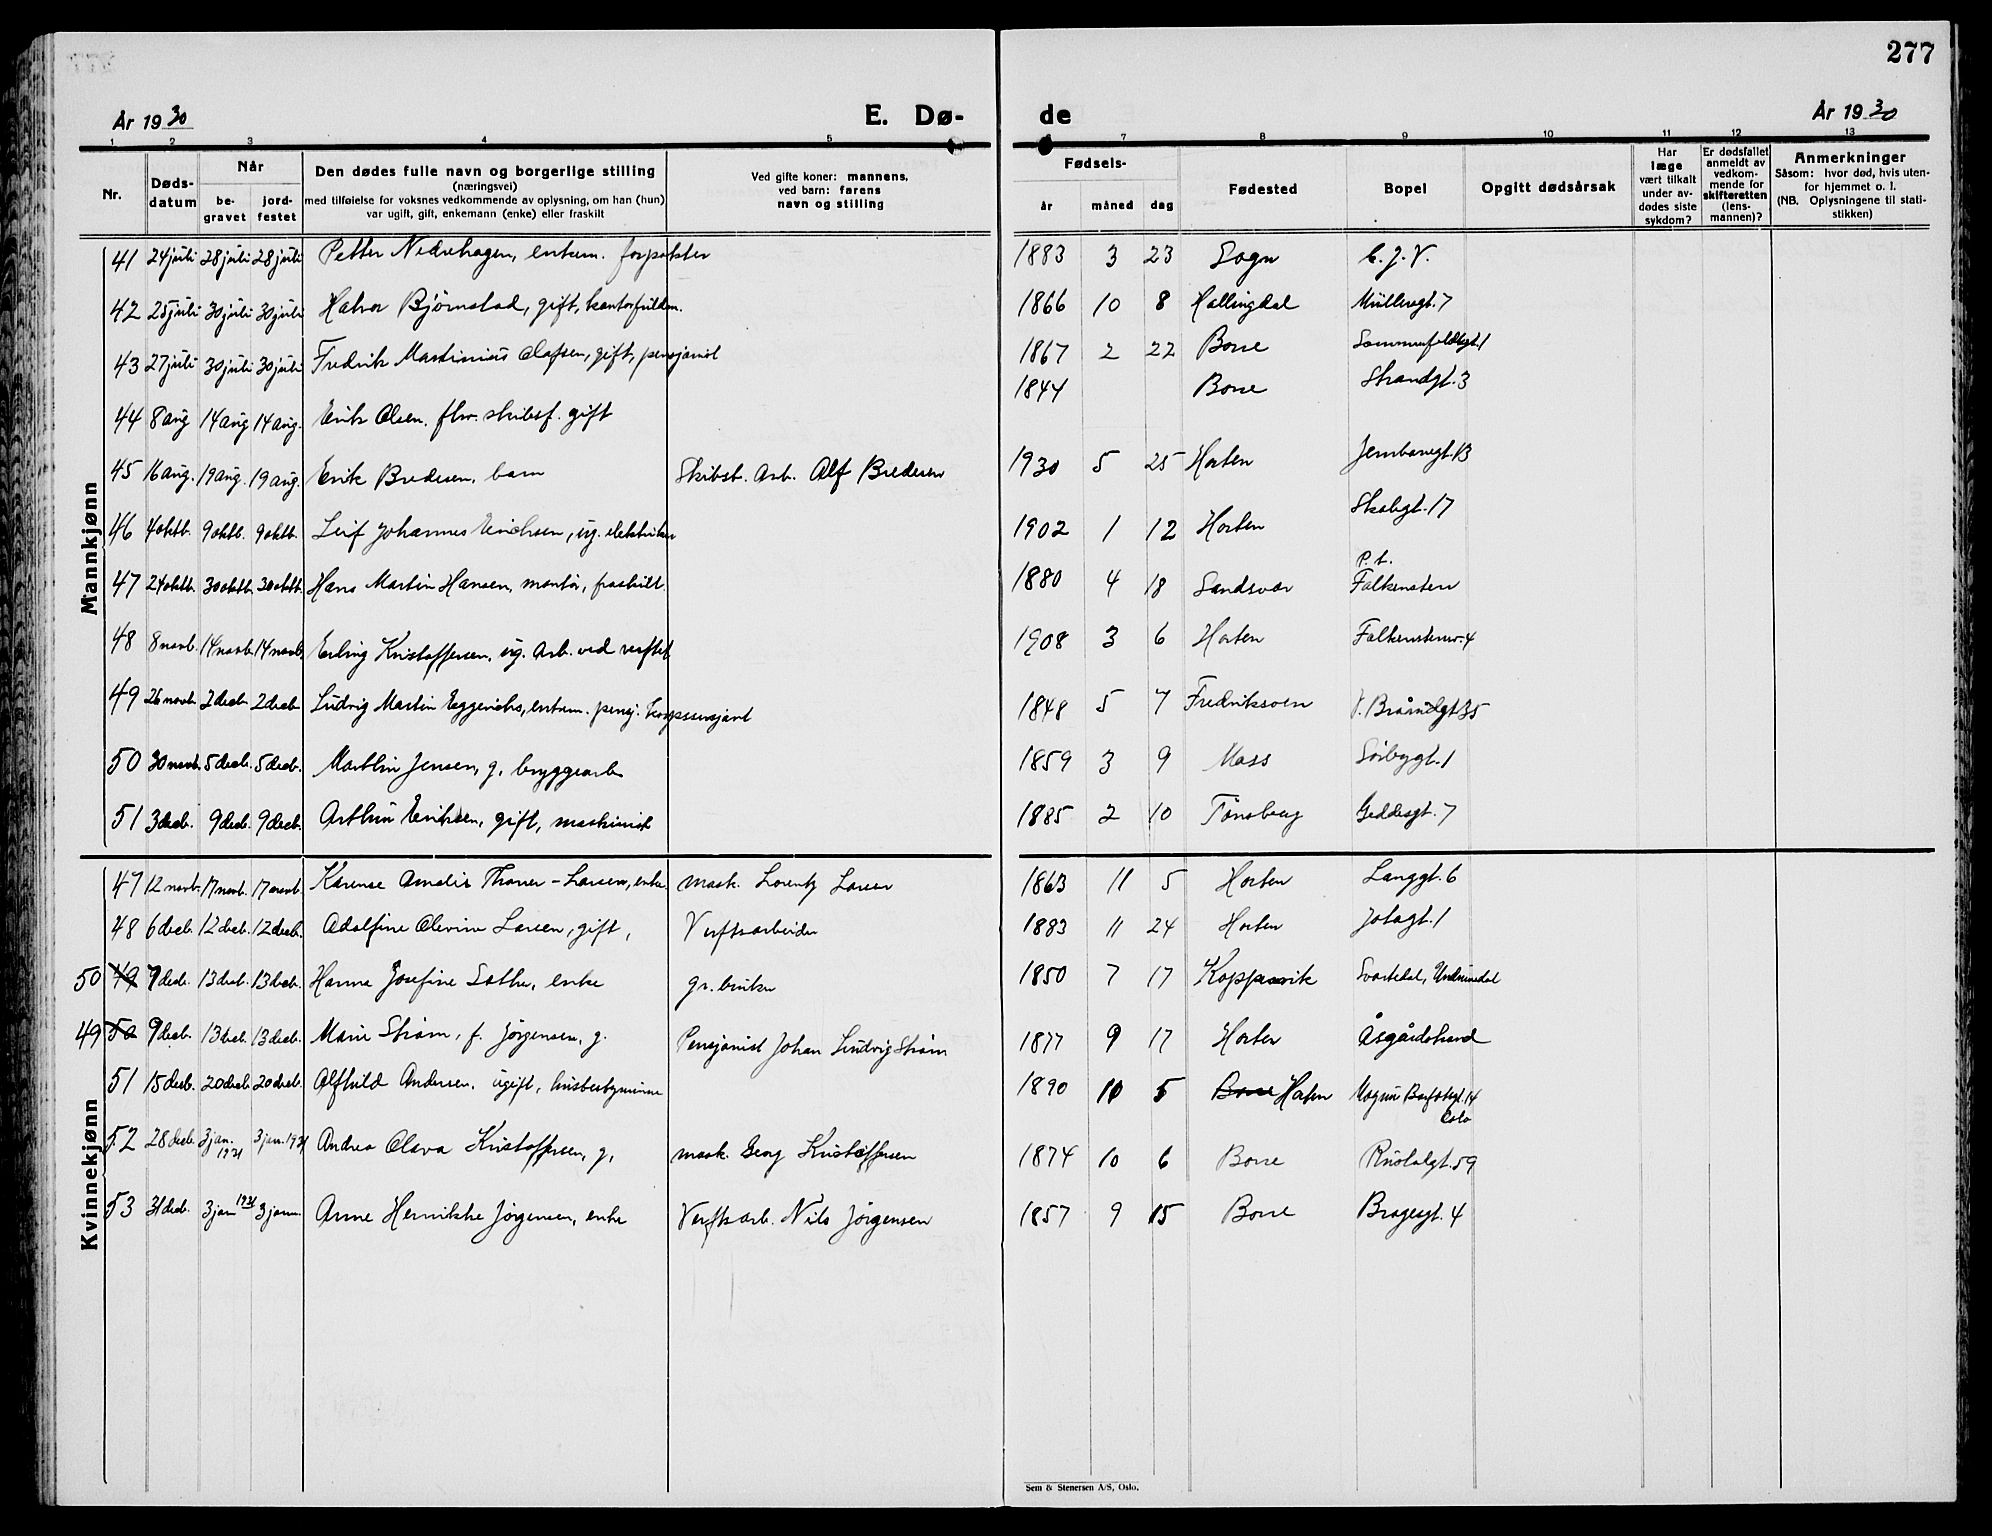 277
År 1930 E. Dø- de År 1930
1 2 3 4 5 6 7 8 9 10 11 12 13
Nr. Døds-datum Når be-gravet jord-festet Den dødes fulle navn og borgerlige stilling (næringsvei) med tilføielse for voksnes vedkommende av oplysning, om han (hun) var ugift, gift, enkemann (enke) eller fraskilt Ved gifte koner: mannens, ved barn: farens navn og stilling Fødsels- år måned dag Fødested Bopel Opgitt dødsårsak Har læge vært tilkalt under av-dødes siste sykdom? Er dødsfallet anmeldt av vedkom-mende for skifteretten (lens-mannen)? Anmerkninger Såsom: hvor død, hvis uten-for hjemmet o. l. (NB. Oplysningene til stati-stikken)
Mannkjønn
41 24 juli 28 juli 28 juli Petter Nedrehagen, enkem. forpakter 1883 3 23 Sogn C.J.V.
42 25 juli 30 juli 30 juli Halvor Bjørnstad, gift, kontorfuldm. 1866 10 8 Hallingdal Müllersgt. 7
43 27 juli 30 juli 30 juli Fredrik Martinius Olafsen, gift, pensjonist 1867 2 22 Borre Sommerfeldtsgt. 1
44 8 aug 14 aug 14 aug. Erik Olsen, fhv. skibsf. gift 1844 Borre Strandgt. 3
45 16 aug. 19 aug. 19 aug. Erik Bredesen, barn Skibsb. Arb. Alf Bredesen 1930 5 25 Horten Jernbanegt. 13
46 4 oktb. 9 oktb. 9 oktb. Leif Johannes Erichsen, ug. elektriker 1902 1 12 Horten Skolegt. 17
47 24 oktb. 30 oktb. 30 oktb. Hans Martin Hansen, montør, fraskilt. 1880 4 18 Sandsvær P.t. Falkensten
48 8 novb. 14 novb. 14 novb. Erling Kristoffersen, ug. Arb. ved verftet 1908 3 6 Horten Falkenstenv. 4
49 26 novb. 2 decb. 2 decb Ludvig Martin Eggerichs, enkem. pensj. korpssersjant 1848 5 7 Fredriksværn V. Braarudgt. 35
50 30 novb. 5 decb. 5 decb. Martin Jensen, g. bryggearb 1859 3 9 Moss Sørbygt. 1
51 3 decb. 9 decb. 9 decb. Arthur Eriksen, gift, maskinist 1885 2 10 Tønsberg Geddesgt. 7
Kvinnekjønn
47 12 novb. 17 novb. 17 novb. Karense Amalie Thoner-Larsen, enke. mask. Lorentz Larsen 1863 11 5 Horten Langgt. 6
48 6 decb. 12 decb. 12 decb. Adolfine Olevine Larsen, gift, Verftsarbeider 1883 11 24 Horten Jotagt. 1
50 49 7 decb. 13 decb. 13 decb. Hanna Josefine Sæther, enke gr. bruker 1850 7 17 Koppervik Svartedal, Undrumsdal
49 50 9 decb. 13 decb. 13 decb. Marie Strøm, f. Jørgensen, g. Pensjonist Johan Ludvig Strøm 1877 9 17 Horten Åsgårdstrand
51 15 decb. 20 decb. 20 decb. Alfhild Andersen, ugift, husbestyrerinne 1890 10 5 Borre Horten Magnus Barfotsgt. 14 Oslo
52 28 decb. 3 jan. 1931 3 jan. 1931 Andrea Olava Kristoffersen, g, mask. Georg Kristoffersen 1874 10 6 Borre Rustadgt. 59
53 31 decb. 3 jan 1931 3 jann. Anne Henrikke Jørgensen, enke Verftsarb. Nils Jørgensen 1857 9 15 Borre Bragesgt. 4
Sem & Stenersen A/S, Oslo.